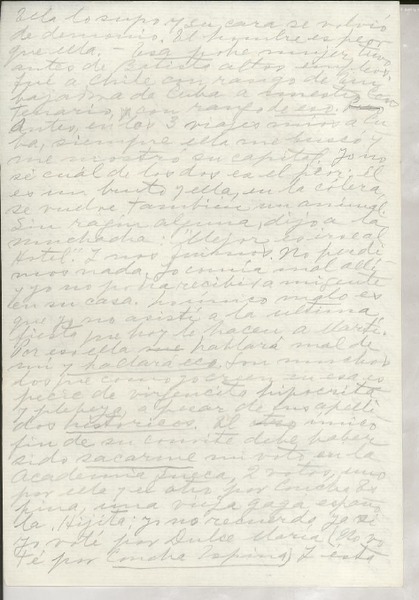 Ella lo supo y su cara se volvió
de demonio. El hombre es peor
que ella. – Esa pobre mujer tuvo
antes de Batista altos empleos,
fué a Chile con rango de
bajadora de Cuba a nuestro Cen
tenario, y con rango de eso.
Antes, en los 3 viajes míos a Cu
ba, siempre ella me buscó y
me mostró su capital. Yo no
sé cuál de los dos es el peor: él
es un bruto y ella, en la cólera
se vuelve también un animal.
Sin razón alguna, dijo a la
muchacha: "Mejor es irse al
Hotel". I nos fuimos. No perdi
mos nada, yo comía mal allí
y yo no podía recibir a mi gente
en su casa. Lo único malo es
que yo no asistí a la última
fiesta que hoy le hacen a Martí.
Por eso ella hablará mal de
mí y hablará eso. Son mucho
dos que conozco en esa es
pecie de virgencita hipócrita
y plebeya, a pesar de sus apelli
dos históricos. El único
fin de su convite debe haber
sido sacarme mi voto en la
Academia Sueca, 2 votos, uno
por ella y el otro por Concha Es
pina, una vieja gagá españo
la. Hijita: yo no recuerdo ya si
yo voté por Dulce María (No vo
té por Concha Espina) I esta